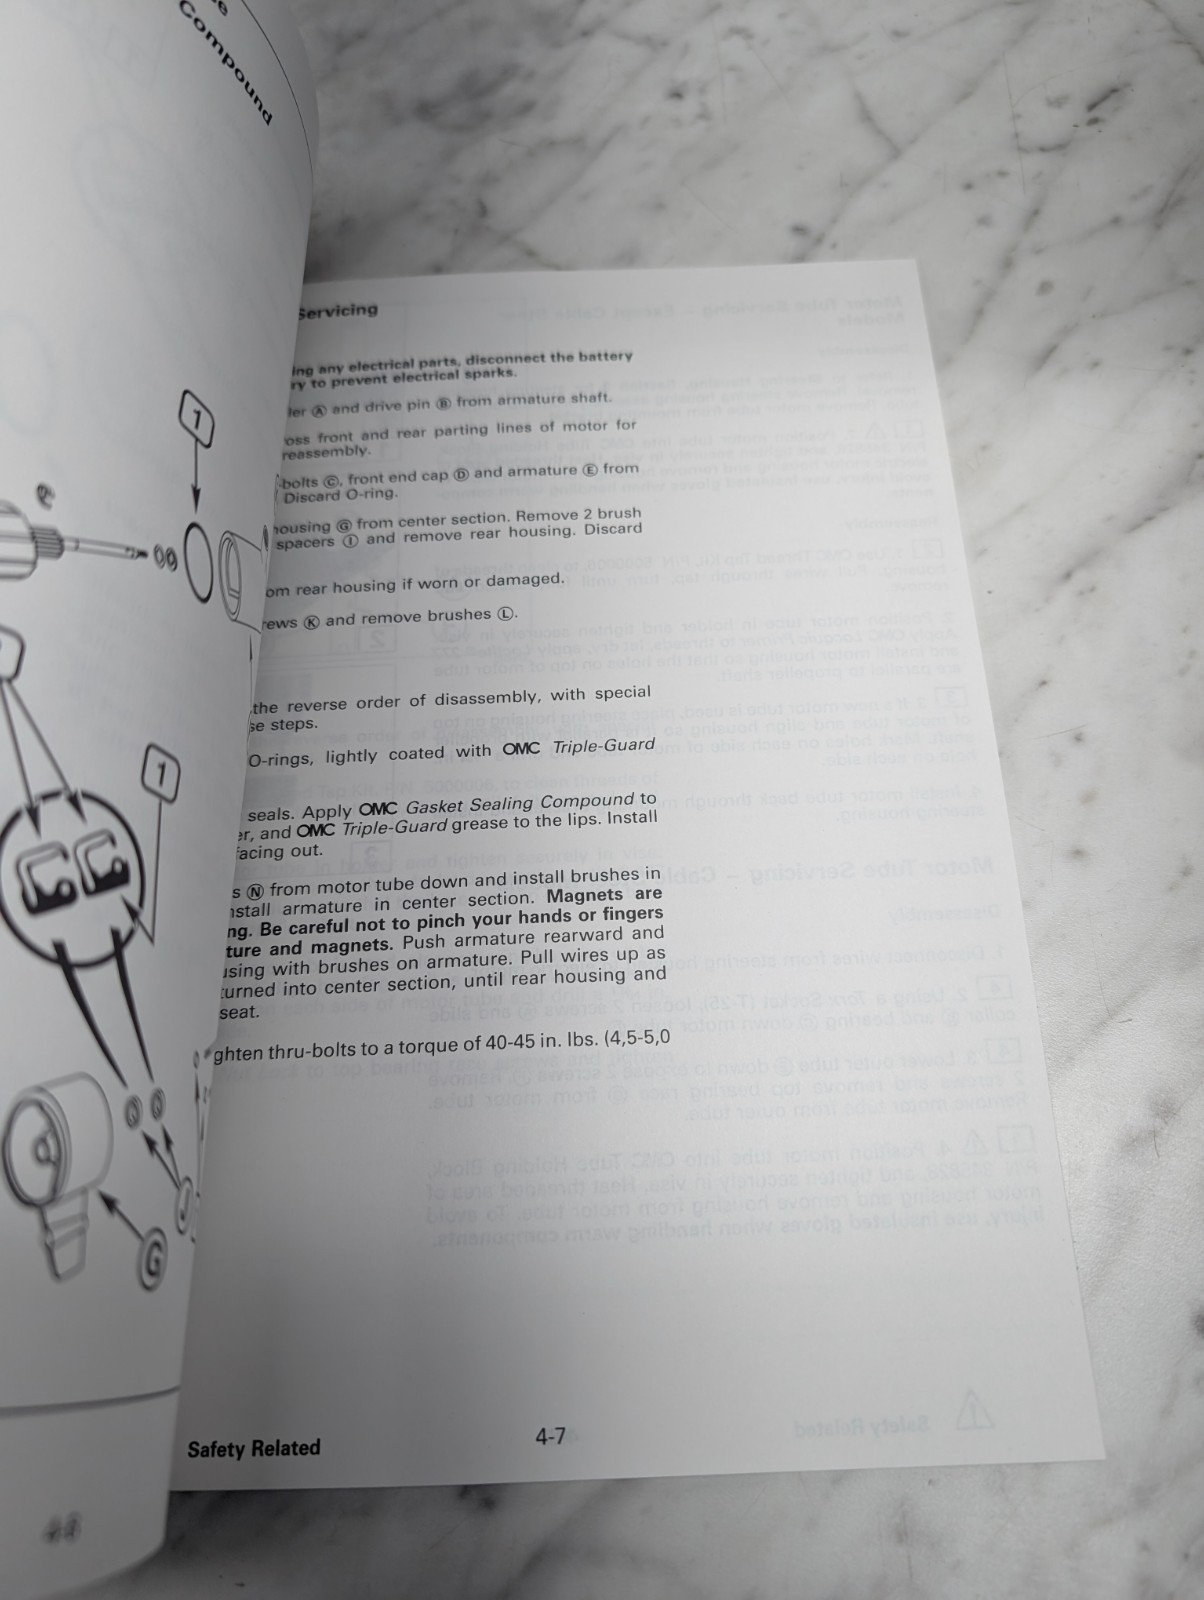 Compound
1
1
G
Servicing
ing any electrical parts, disconnect the battery
ry to prevent electrical sparks.
ler Ⓐ and drive pin Ⓑ from armature shaft.
oss front and rear parting lines of motor for
reassembly.
bolts Ⓒ, front end cap Ⓓ and armature Ⓔ from
Discard O-ring.
housing Ⓖ from center section. Remove 2 brush
spacers Ⓘ and remove rear housing. Discard
om rear housing if worn or damaged.
rews Ⓚ and remove brushes Ⓛ.
the reverse order of disassembly, with special
se steps.
O-rings, lightly coated with OMC Triple-Guard
seals. Apply OMC Gasket Sealing Compound to
er, and OMC Triple-Guard grease to the lips. Install
facing out.
s Ⓝ from motor tube down and install brushes in
nstall armature in center section. Magnets are
ng. Be careful not to pinch your hands or fingers
ture and magnets. Push armature rearward and
using with brushes on armature. Pull wires up as
turned into center section, until rear housing and
seat.
ghten thru-bolts to a torque of 40-45 in. lbs. (4,5-5,0
Safety Related
4-7